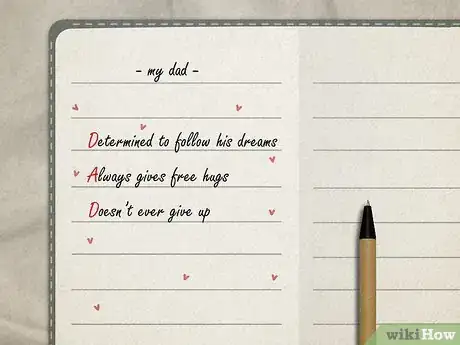 - my dad -
Determined to follow his dreams
Always gives free hugs
Doesn't ever give up
wikiHow